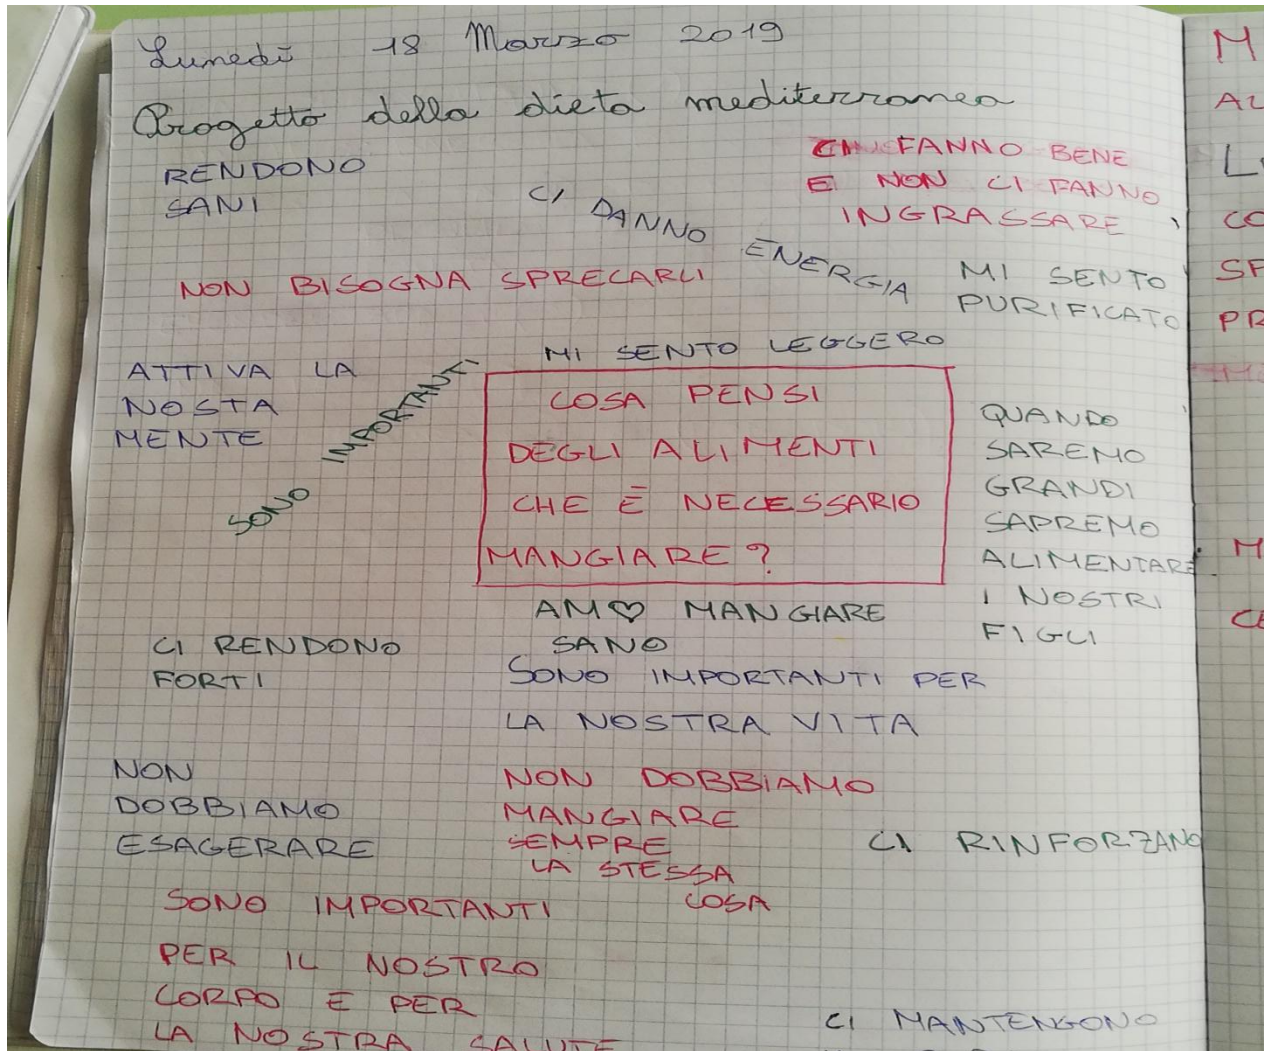 Lunedì 18 Marzo 2019
Progetto della dieta mediterranea
RENDONO
SANI
CI DANNO ENERGIA
FANNO BENE
E NON CI FANNO
INGRASSARE
NON BISOGNA SPRECARLI
MI SENTO
PURIFICATO
MI SENTO LEGGERO
ATTIVA LA
NOSTA
MENTE
SONO IMPORTANTI
COSA PENSI
DEGLI ALIMENTI
CHE È NECESSARIO
MANGIARE?
QUANDO
SAREMO
GRANDI
SAPREMO
ALIMENTARE
I NOSTRI
FIGLI
AMO MANGIARE
SANO
CI RENDONO
FORTI
SONO IMPORTANTI PER
LA NOSTRA VITA
NON
DOBBIAMO
ESAGERARE
NON DOBBIAMO
MANGIARE
SEMPRE
LA STESSA
COSA
CI RINFORZANO
SONO IMPORTANTI
PER IL NOSTRO
CORPO E PER
LA NOSTRA SALUTE
CI MANTENGONO